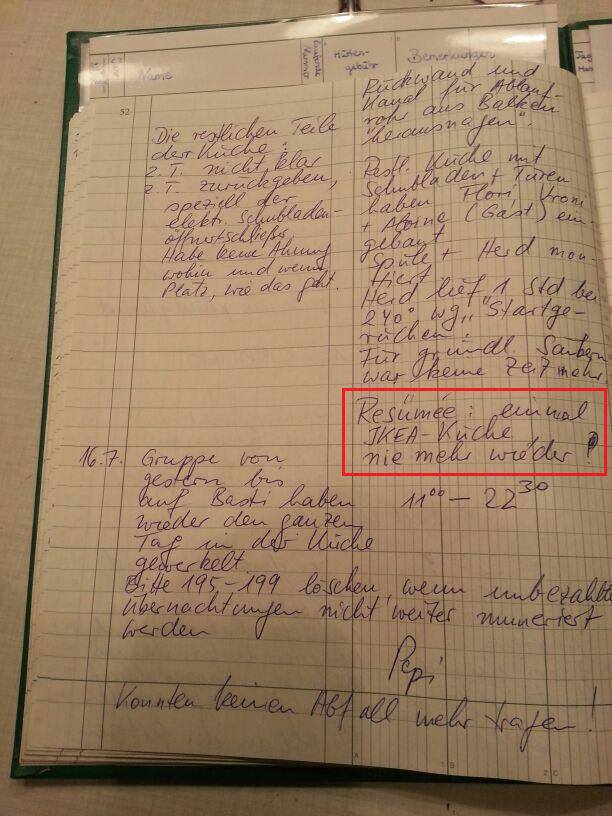 Name
Hütten-
gebühr
Bemerkungen
52
Die restlichen Teile
der Küche:
z. T. nicht klar
z. T. zurückgeben,
speziell der
elektr. Schubladen-
öffner+schließer,
Habe keine Ahnung
wohin und wenn
Platz, wie das geht.
Rückwand und
Kanal für Ablauf-
rohr aus Balken
"herausnagen".
Restl. Küche mit
Schubladen + Türen
haben Flori, Vroni
+ (Gast) ein-
gebaut
Spüle + Herd mon-
tiert
Herd lief 1 Std bei
240° wg. "Startge-
rüchen".
Für gründl. Säubern
war keine Zeit mehr.
Resümée: einmal
IKEA-Küche
nie mehr wieder!
16.7. Gruppe von
gestern bis
auf Basti haben 11⁰⁰ – 22³⁰
wieder den ganzen
Tag in der Küche
gewerkelt.
Bitte 195-199 löschen, wenn unbezahlte
Übernachtungen nicht weiter numeriert
werden
Pepi
Konnten keinen Abfall mehr tragen!
A
1 B
2 C